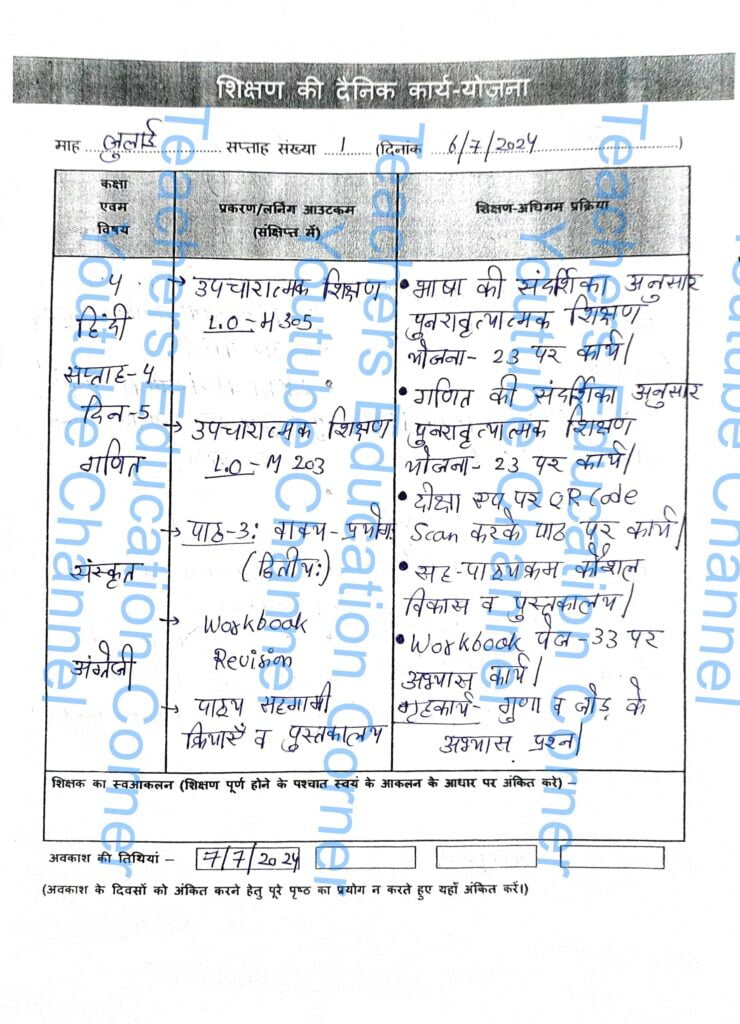 शिक्षण की दैनिक कार्य-योजना
माह जुलाई सप्ताह संख्या 1 (दिनांक 6/7/2024)
कक्षा
एवम
विषय
प्रकरण/लर्निग आउटकम
(संक्षिप्त में)
शिक्षण-अधिगम प्रक्रिया
हिंदी
सप्ताह-4
दिन-5
गणित
संस्कृत
अंग्रेजी
→ उपचारात्मक शिक्षण
L.O-M 305
→ उपचारात्मक शिक्षण
L.O-M 203
→ पाठ-3: वाक्य-प्रयोग:
(द्वितीय:)
→ Workbook
Revision
→ पाठ्य सहगामी
क्रियाएँ व पुस्तकालय
• भाषा की संदर्शिका अनुसार
पुनरावृत्यात्मक शिक्षण
योजना- 23 पर कार्य।
• गणित की संदर्शिका अनुसार
पुनरावृत्यात्मक शिक्षण
योजना- 23 पर कार्य।
• दीक्षा एप पर QR Code
Scan करके पाठ पर कार्य।
• सह-पाठ्यक्रम कौशल
विकास व पुस्तकालय।
• Workbook पेज-33 पर
अभ्यास कार्य।
गृहकार्य- गुणा व जोड़ के
अभ्यास प्रश्न।
शिक्षक का स्वआकलन (शिक्षण पूर्ण होने के पश्चात स्वयं के आकलन के आधार पर अंकित करे) –
अवकाश की तिथियां – 7/7/2024
(अवकाश के दिवसों को अंकित करने हेतु पूरे पृष्ठ का प्रयोग न करते हुए यहाँ अंकित करें।)
Teachers Education Corner
Youtube Channel
Teachers Education Corner
Youtube Channel
Teachers Education Corner
Youtube Channel
Youtube Channel